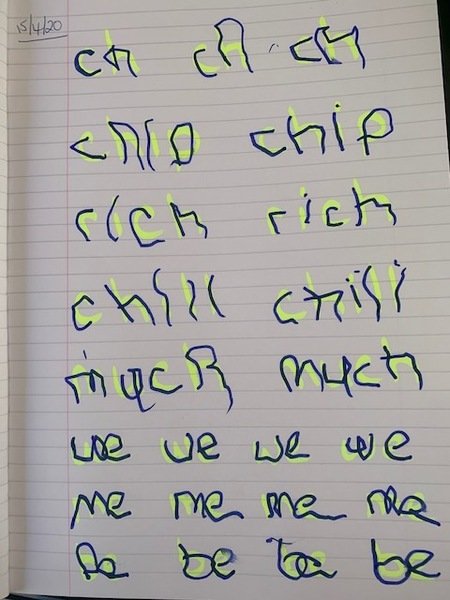 15/4/20
ch ch ch
chip chip
rich rich
chill chill
much much
we we we we
me me me me
be be be be